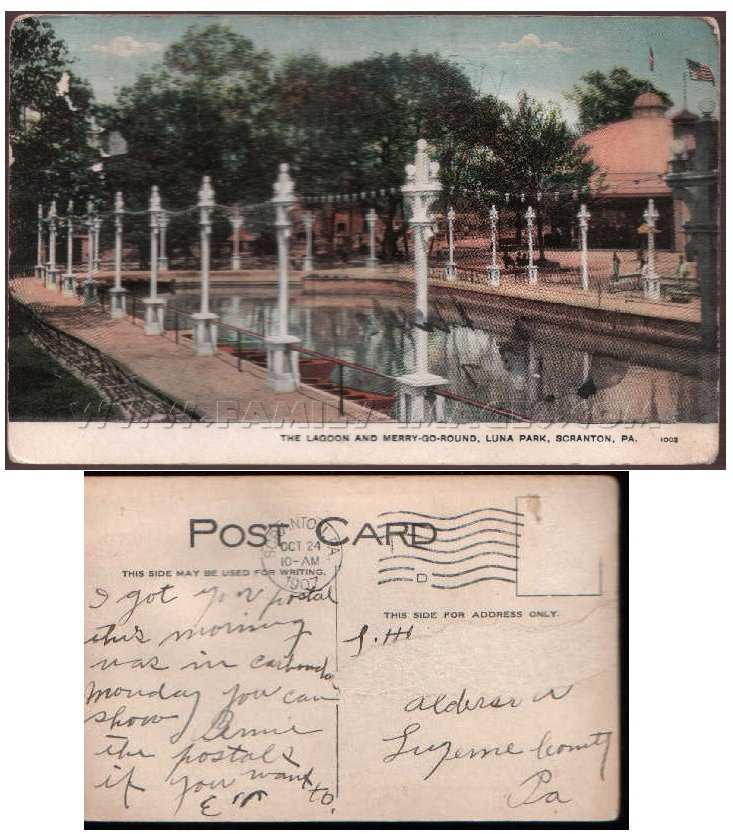 WWW.FAMILYIMAGES.COM
THE LAGOON AND MERRY-GO-ROUND, LUNA PARK, SCRANTON, PA. 1003
POST CARD
SCRANTON, PA.
OCT 24
10-AM
1907
D
THIS SIDE MAY BE USED FOR WRITING.
THIS SIDE FOR ADDRESS ONLY.
I got your postal
this morning
was in carbondale
monday you can
show Annie
the postals
if you want to.
alderson
Luzerne County
Pa